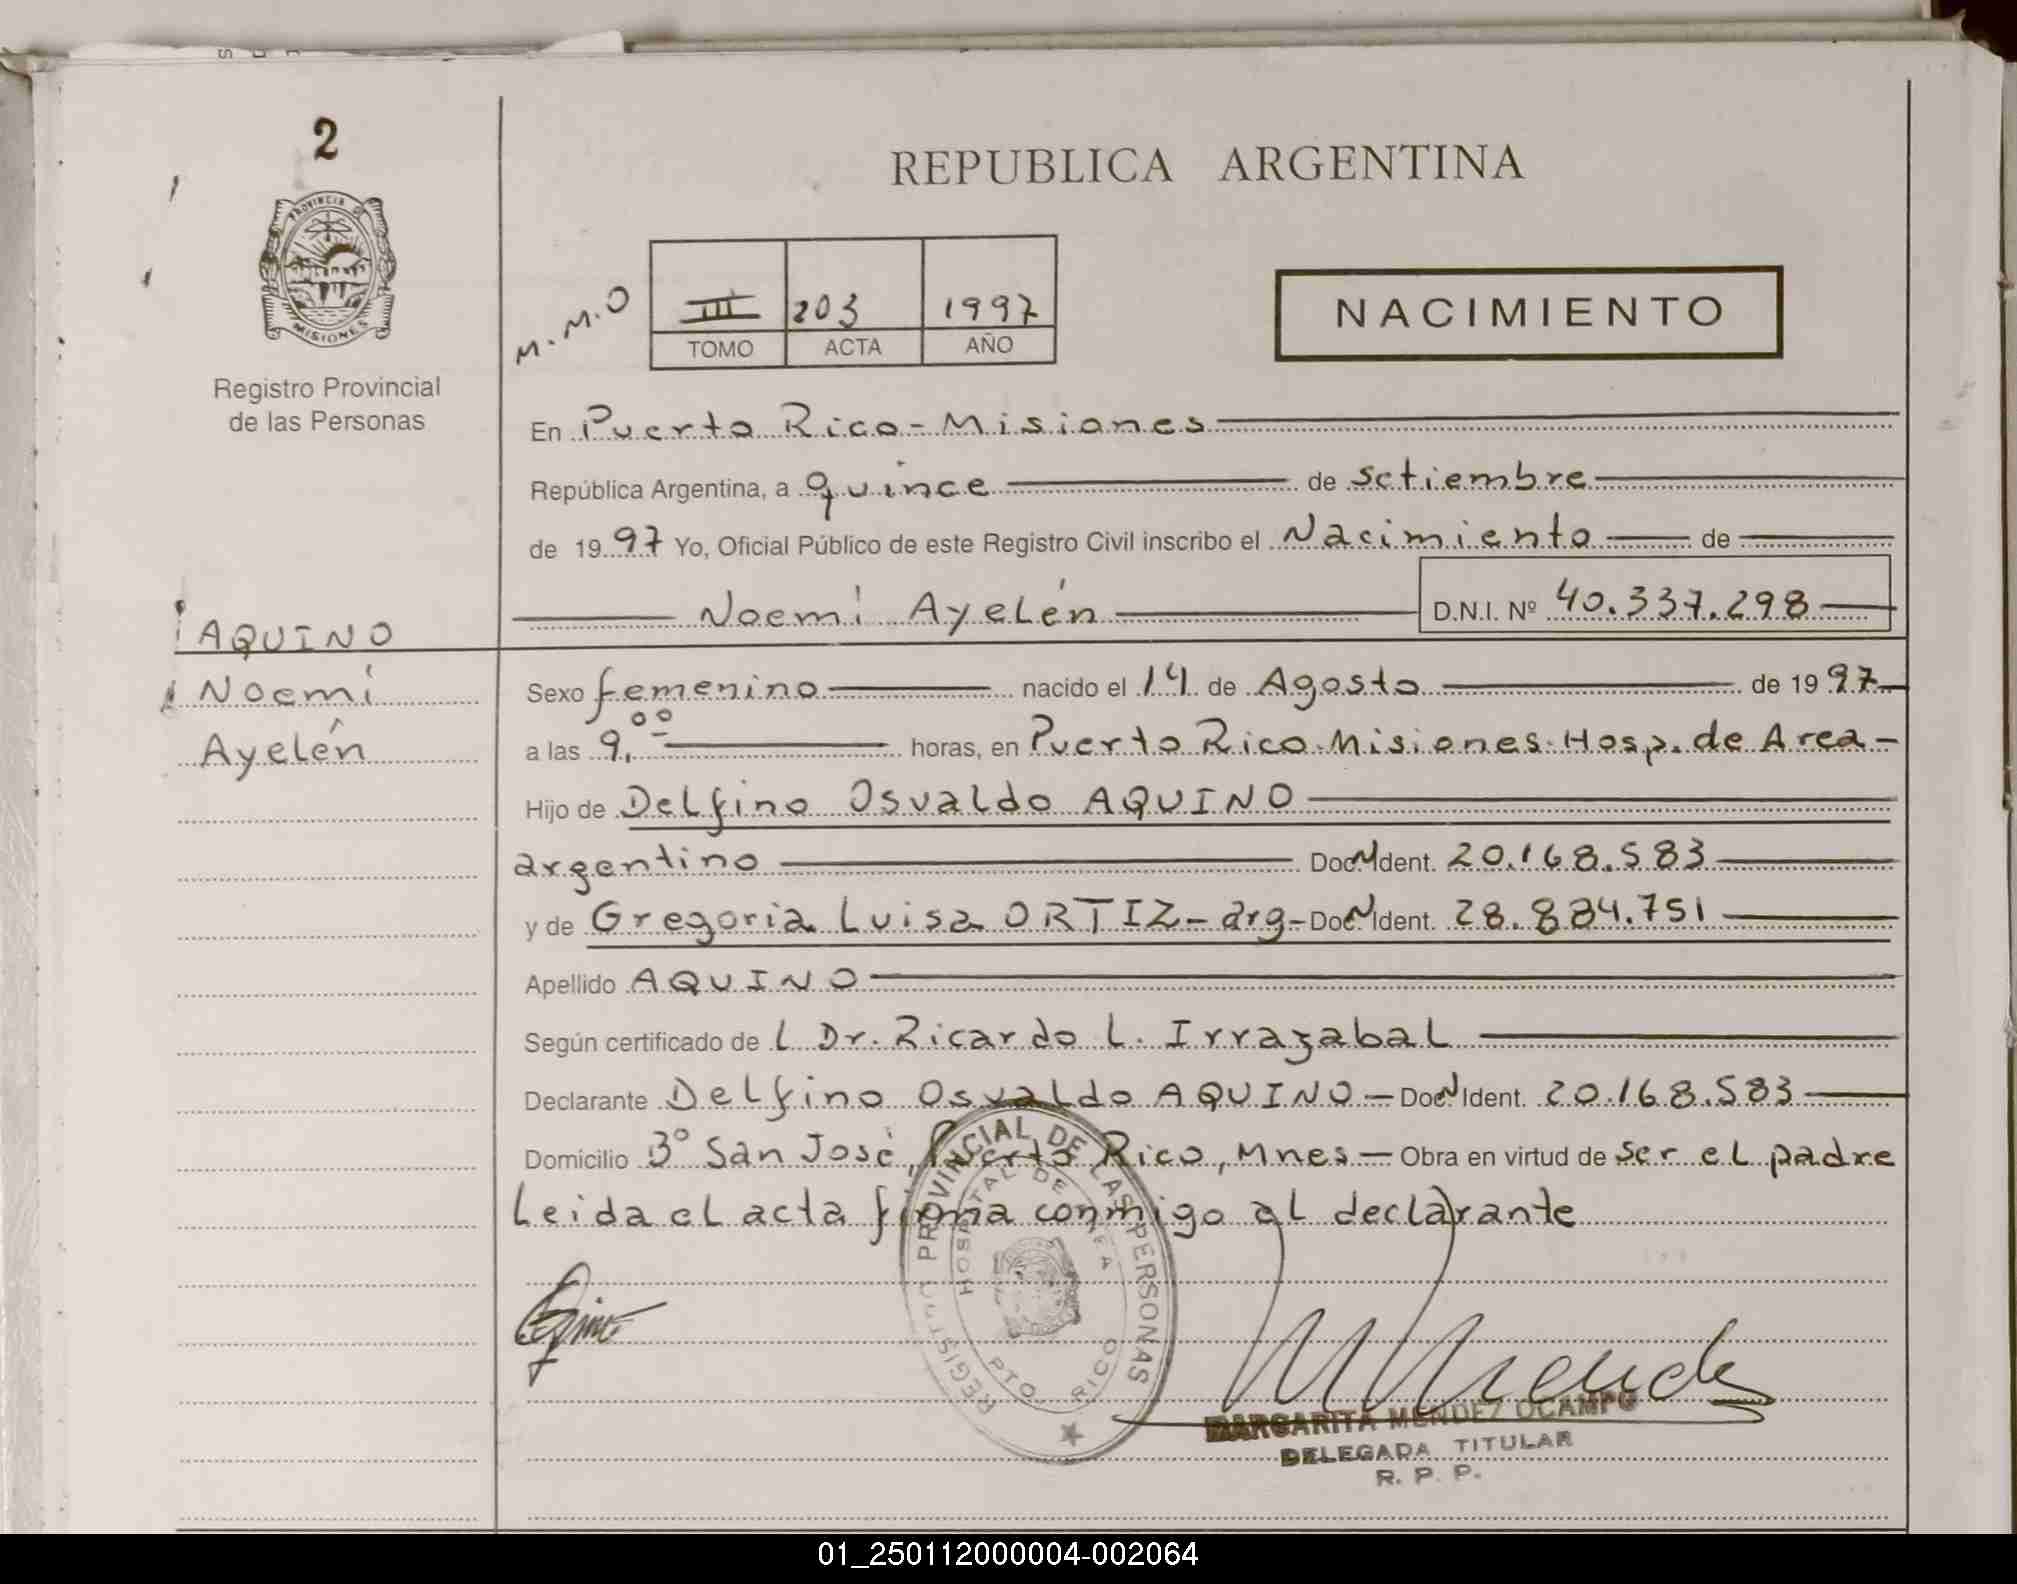 2
REPUBLICA ARGENTINA
PROVINCIA DE
MISIONES
M.M.O
III 203 1997
TOMO ACTA AÑO
NACIMIENTO
Registro Provincial
de las Personas
En Puerto Rico - Misiones
República Argentina, a quince de setiembre
de 1997 Yo, Oficial Público de este Registro Civil inscribo el Nacimiento de
Noemí Ayelén D.N.I. Nº 40.337.298
AQUINO
Noemí
Ayelén
Sexo femenino nacido el 14 de Agosto de 1997
a las 9,00 horas, en Puerto Rico Misiones. Hosp. de Area -
Hijo de Delfino Osvaldo AQUINO
argentino Doc. N Ident. 20.168.583
y de Gregoria Luisa ORTIZ - arg - Doc. N Ident. 28.884.751
Apellido AQUINO
Según certificado de L Dr. Ricardo L. Irrazabal
Declarante Delfino Osvaldo AQUINO - Doc. N Ident. 20.168.583
Domicilio Bº San José, Puerto Rico, Mnes - Obra en virtud de ser el padre
Leida el acta firma conmigo el declarante
REGISTRO PROVINCIAL DE LAS PERSONAS
HOSPITAL DE AREA
PTO. RICO
MARGARITA MENDEZ OCAMPO
DELEGADA TITULAR
R. P. P.
01_250112000004-002064